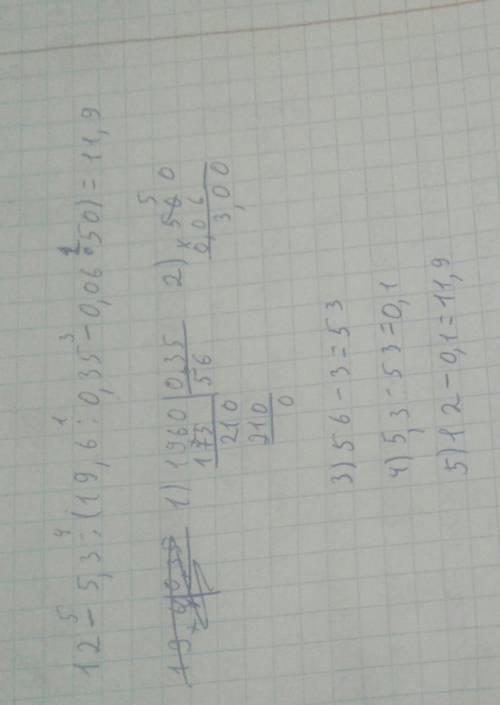 12 - 5,3 : (19,6 : 0,35 - 0,06 · 50) = 11,9
1) 1960 | 0,35
175 | 56
210
210
0
2) × 50
0,06
3,00
3) 56 - 3 = 53
4) 5,3 : 53 = 0,1
5) 12 - 0,1 = 11,9